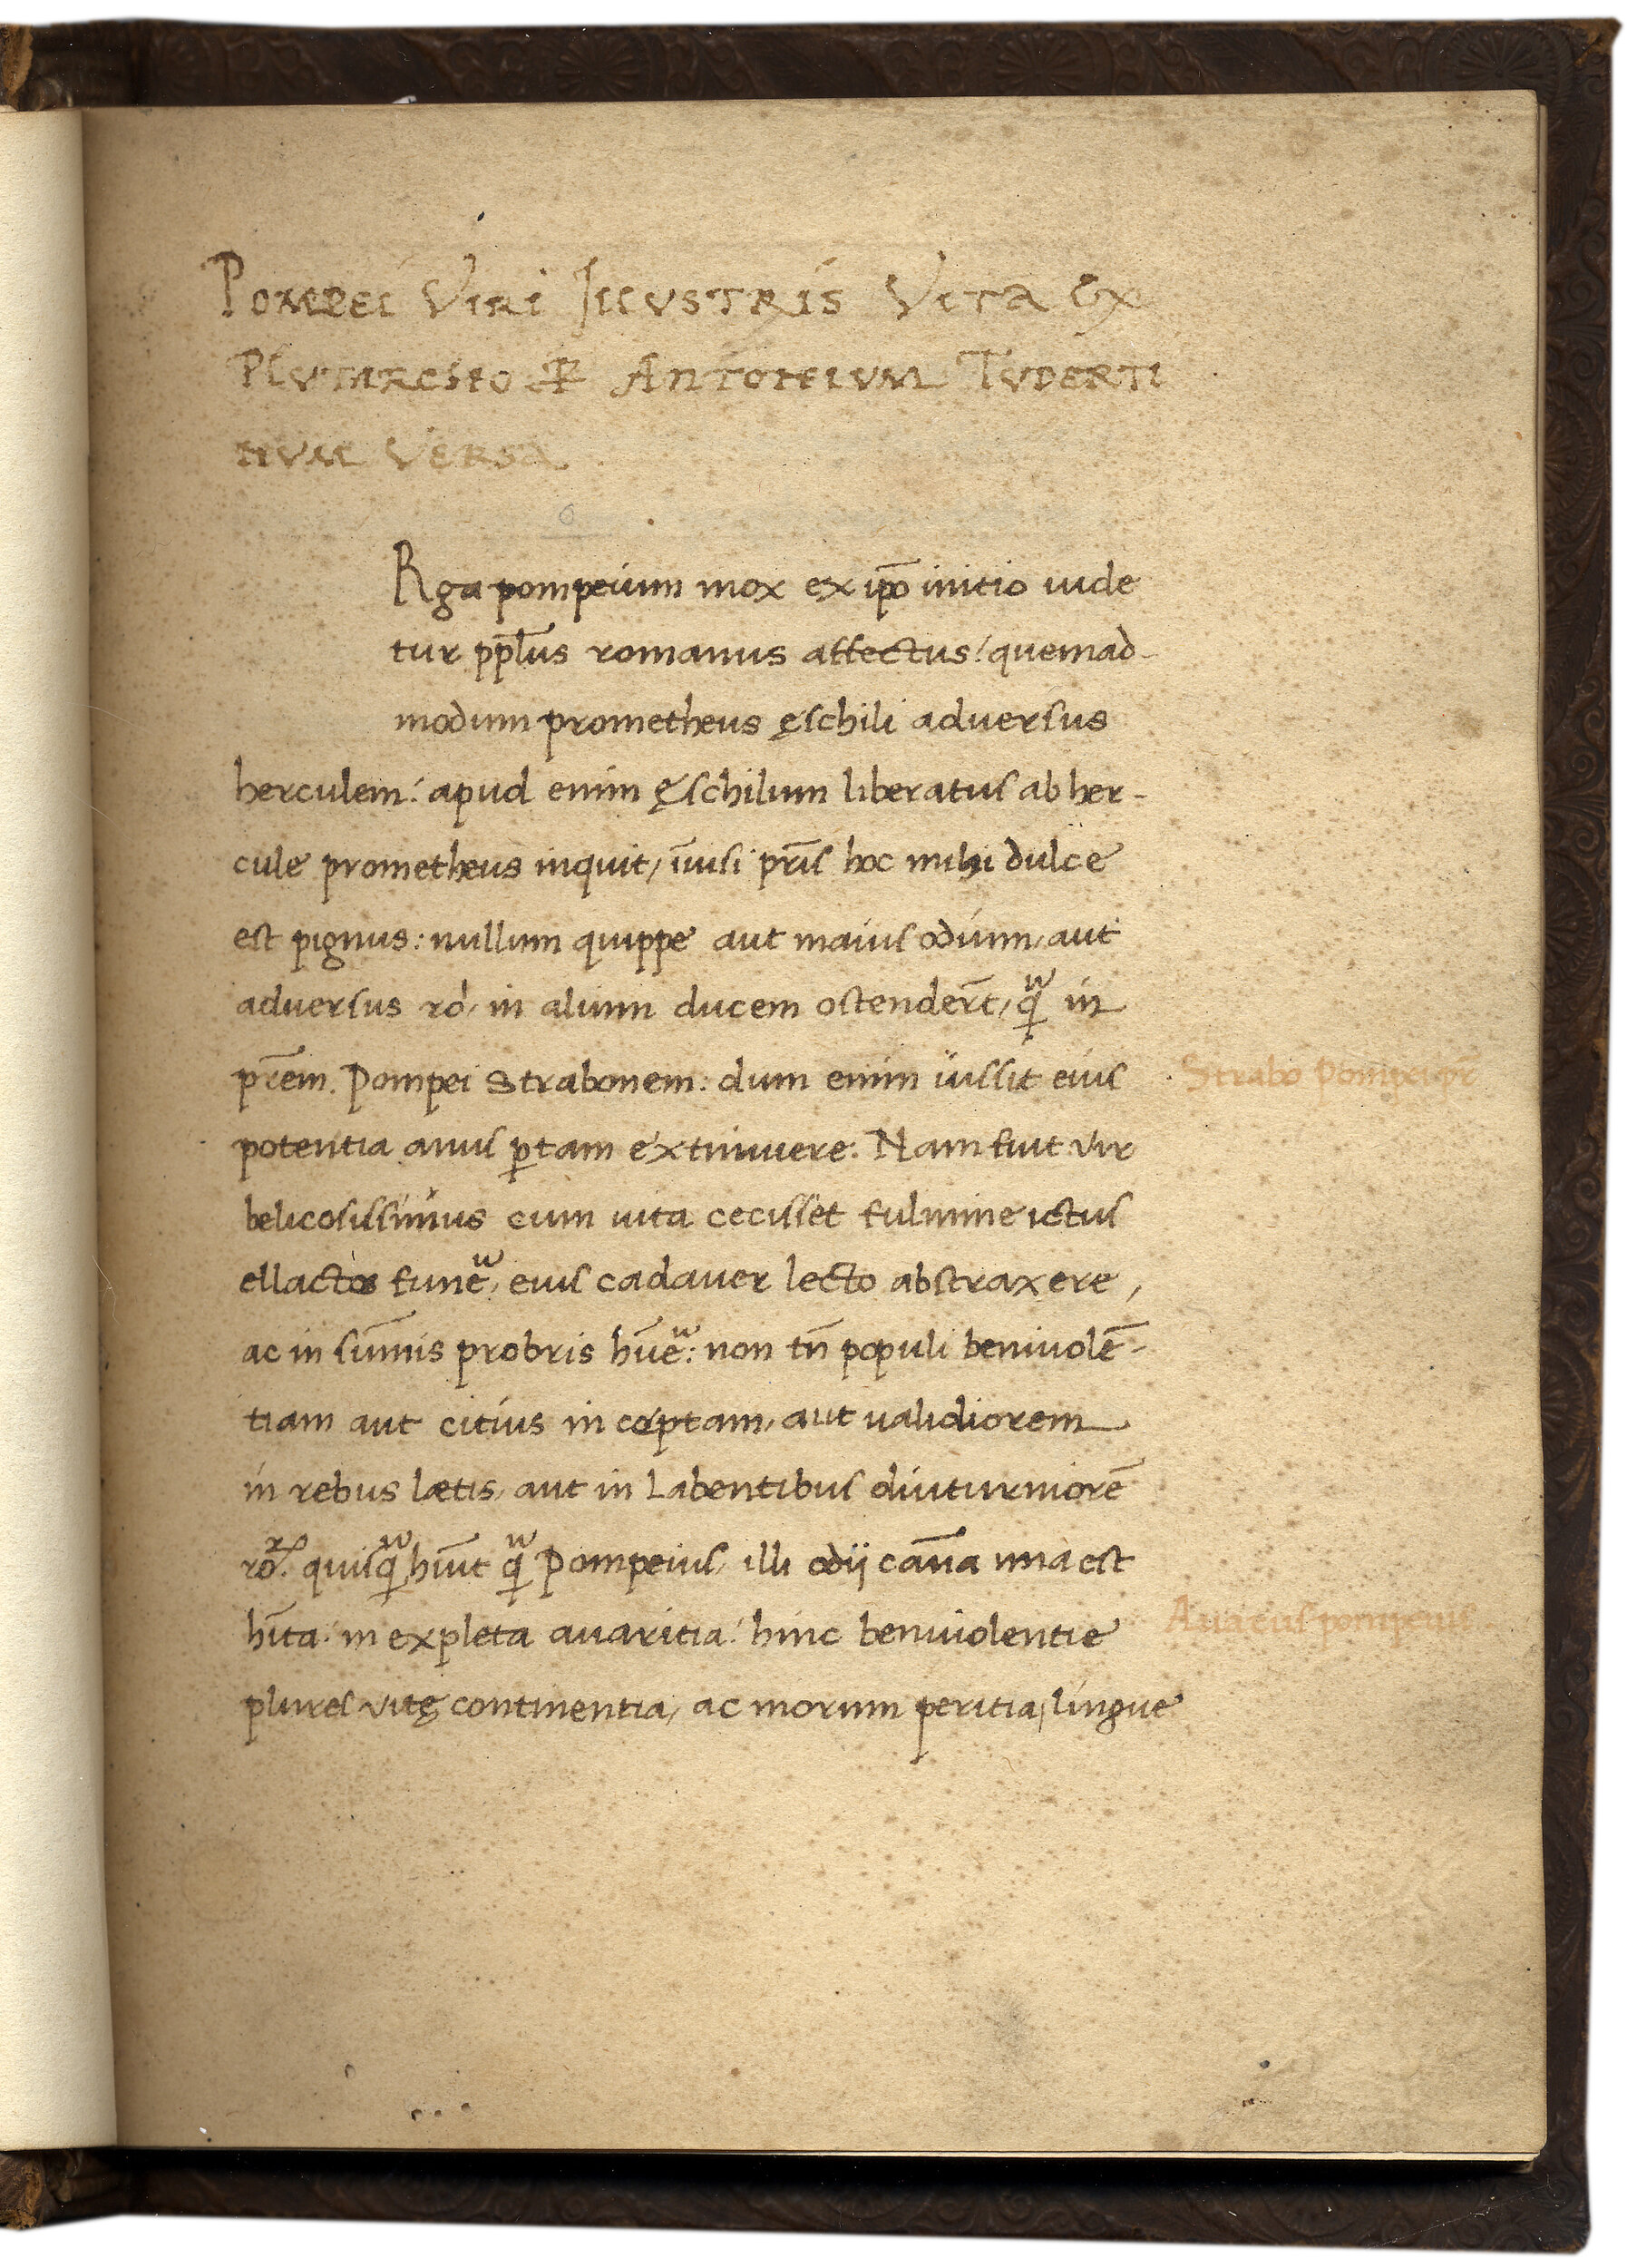 Pompei Viri Illustris Vita Ex
Plutarcho ꝑ Antonium Tuderti
num versa
Rga pompeium mox ex ip̄o initio uide
tur pp̄lus romanus affectus: quemad-
modum prometheus ęschili aduersus
herculem: apud enim ęschilum liberatus ab her-
cule prometheus inquit, īuisi pr̄is hoc mihi dulce
est pignus: nullum quippe aut maius odium, aut
aduersus ro, in alium ducem ostender̄t, qͣ in
pr̄em. Pompei Strabonem: dum enim iussit eius
Strabo Pompei pr̄
potentia ꝑtam extimuere: Nam fuit vir
belicosissimus cum uita cecisset fulmine ictus
ellacto funeͣ, eius cadauer lecto abstraxere,
ac in sum̄is probris hūeͣ: non tn̄ populi beniuolē-
tiam aut citius in cœptam, aut ualidiorem
in rebus lætis, aut in Labentibus diuturniorē
ro. quisqͣ hūit qͣ Pompeius, illi odij cāua una est
hīta: in expleta auaritia: hinc beniuolentie
pompeius
plures vitę continentia, ac morum peritia, lingue